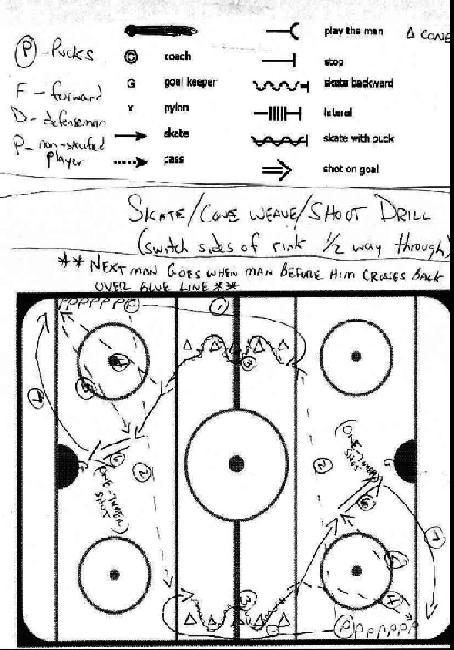 play the man
Δ CONE
(P) - PUCKS
© coach
stop
F - forward
G goal keeper
skate backward
D - defenseman
x pylon
lateral
P - non-skated player
skate
skate with puck
pass
shot on goal
SKATE/CONE WEAVE/SHOOT DRILL
(switch sides of rink 1/2 way through)
** NEXT MAN GOES WHEN MAN BEFORE HIM CROSSES BACK
OVER BLUE LINE **
PPPPPP
1
3
7
2
6
(ONE-TIMER
SHOT)
(ONE-TIMER
SHOT)
2
6
7
3
4
P PPPPP